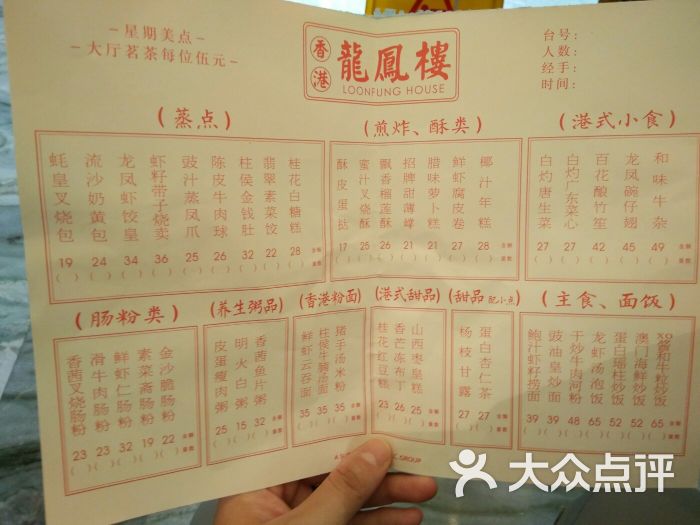 星期美点
大厅茗茶每位伍元
香港
龍鳳樓
LOONFUNG HOUSE
台号：
人数：
经手：
时间：
（蒸点）
蚝皇叉烧包 19
流沙奶黄包 24
龙凤虾饺皇 34
虾籽带子烧卖 36
豉汁蒸凤爪 25
陈皮牛肉球 26
柱侯金钱肚 32
翡翠素菜饺 22
桂花白糖糕 28
（煎炸、酥类）
酥皮蛋挞 17
蜜汁叉烧酥 25
飘香榴莲酥 26
招牌甜薄罉 21
腊味萝卜糕 21
鲜虾腐皮卷 27
椰汁年糕 28
（港式小食）
白灼唐生菜 27
白灼广东菜心 27
百花酿竹笙 42
龙凤碗仔翅 45
和味牛杂 49
（肠粉类）
香茜叉烧肠粉 23
滑牛肉肠粉 23
鲜虾仁肠粉 32
素菜斋肠粉 19
金沙脆肠粉 22
（养生粥品）
皮蛋瘦肉粥 25
明火白粥 15
香茜鱼片粥 32
（香港粉面）
鲜虾云吞面 35
柱侯牛腩汤面 35
猪手汤米粉 35
（港式甜品）
桂花红豆糕 23
香芒冻布丁 26
山西枣皇糕 25
（甜品 配小点）
杨枝甘露 27
蛋白杏仁茶 27
（主食、面饭）
鲍汁虾籽捞面 39
豉油皇炒面 39
干炒牛肉河粉 48
龙虾汤泡饭 65
蛋白瑶柱炒饭 52
澳门海鲜炒饭 52
XO酱和牛粒炒饭 65
GROUP
大众点评